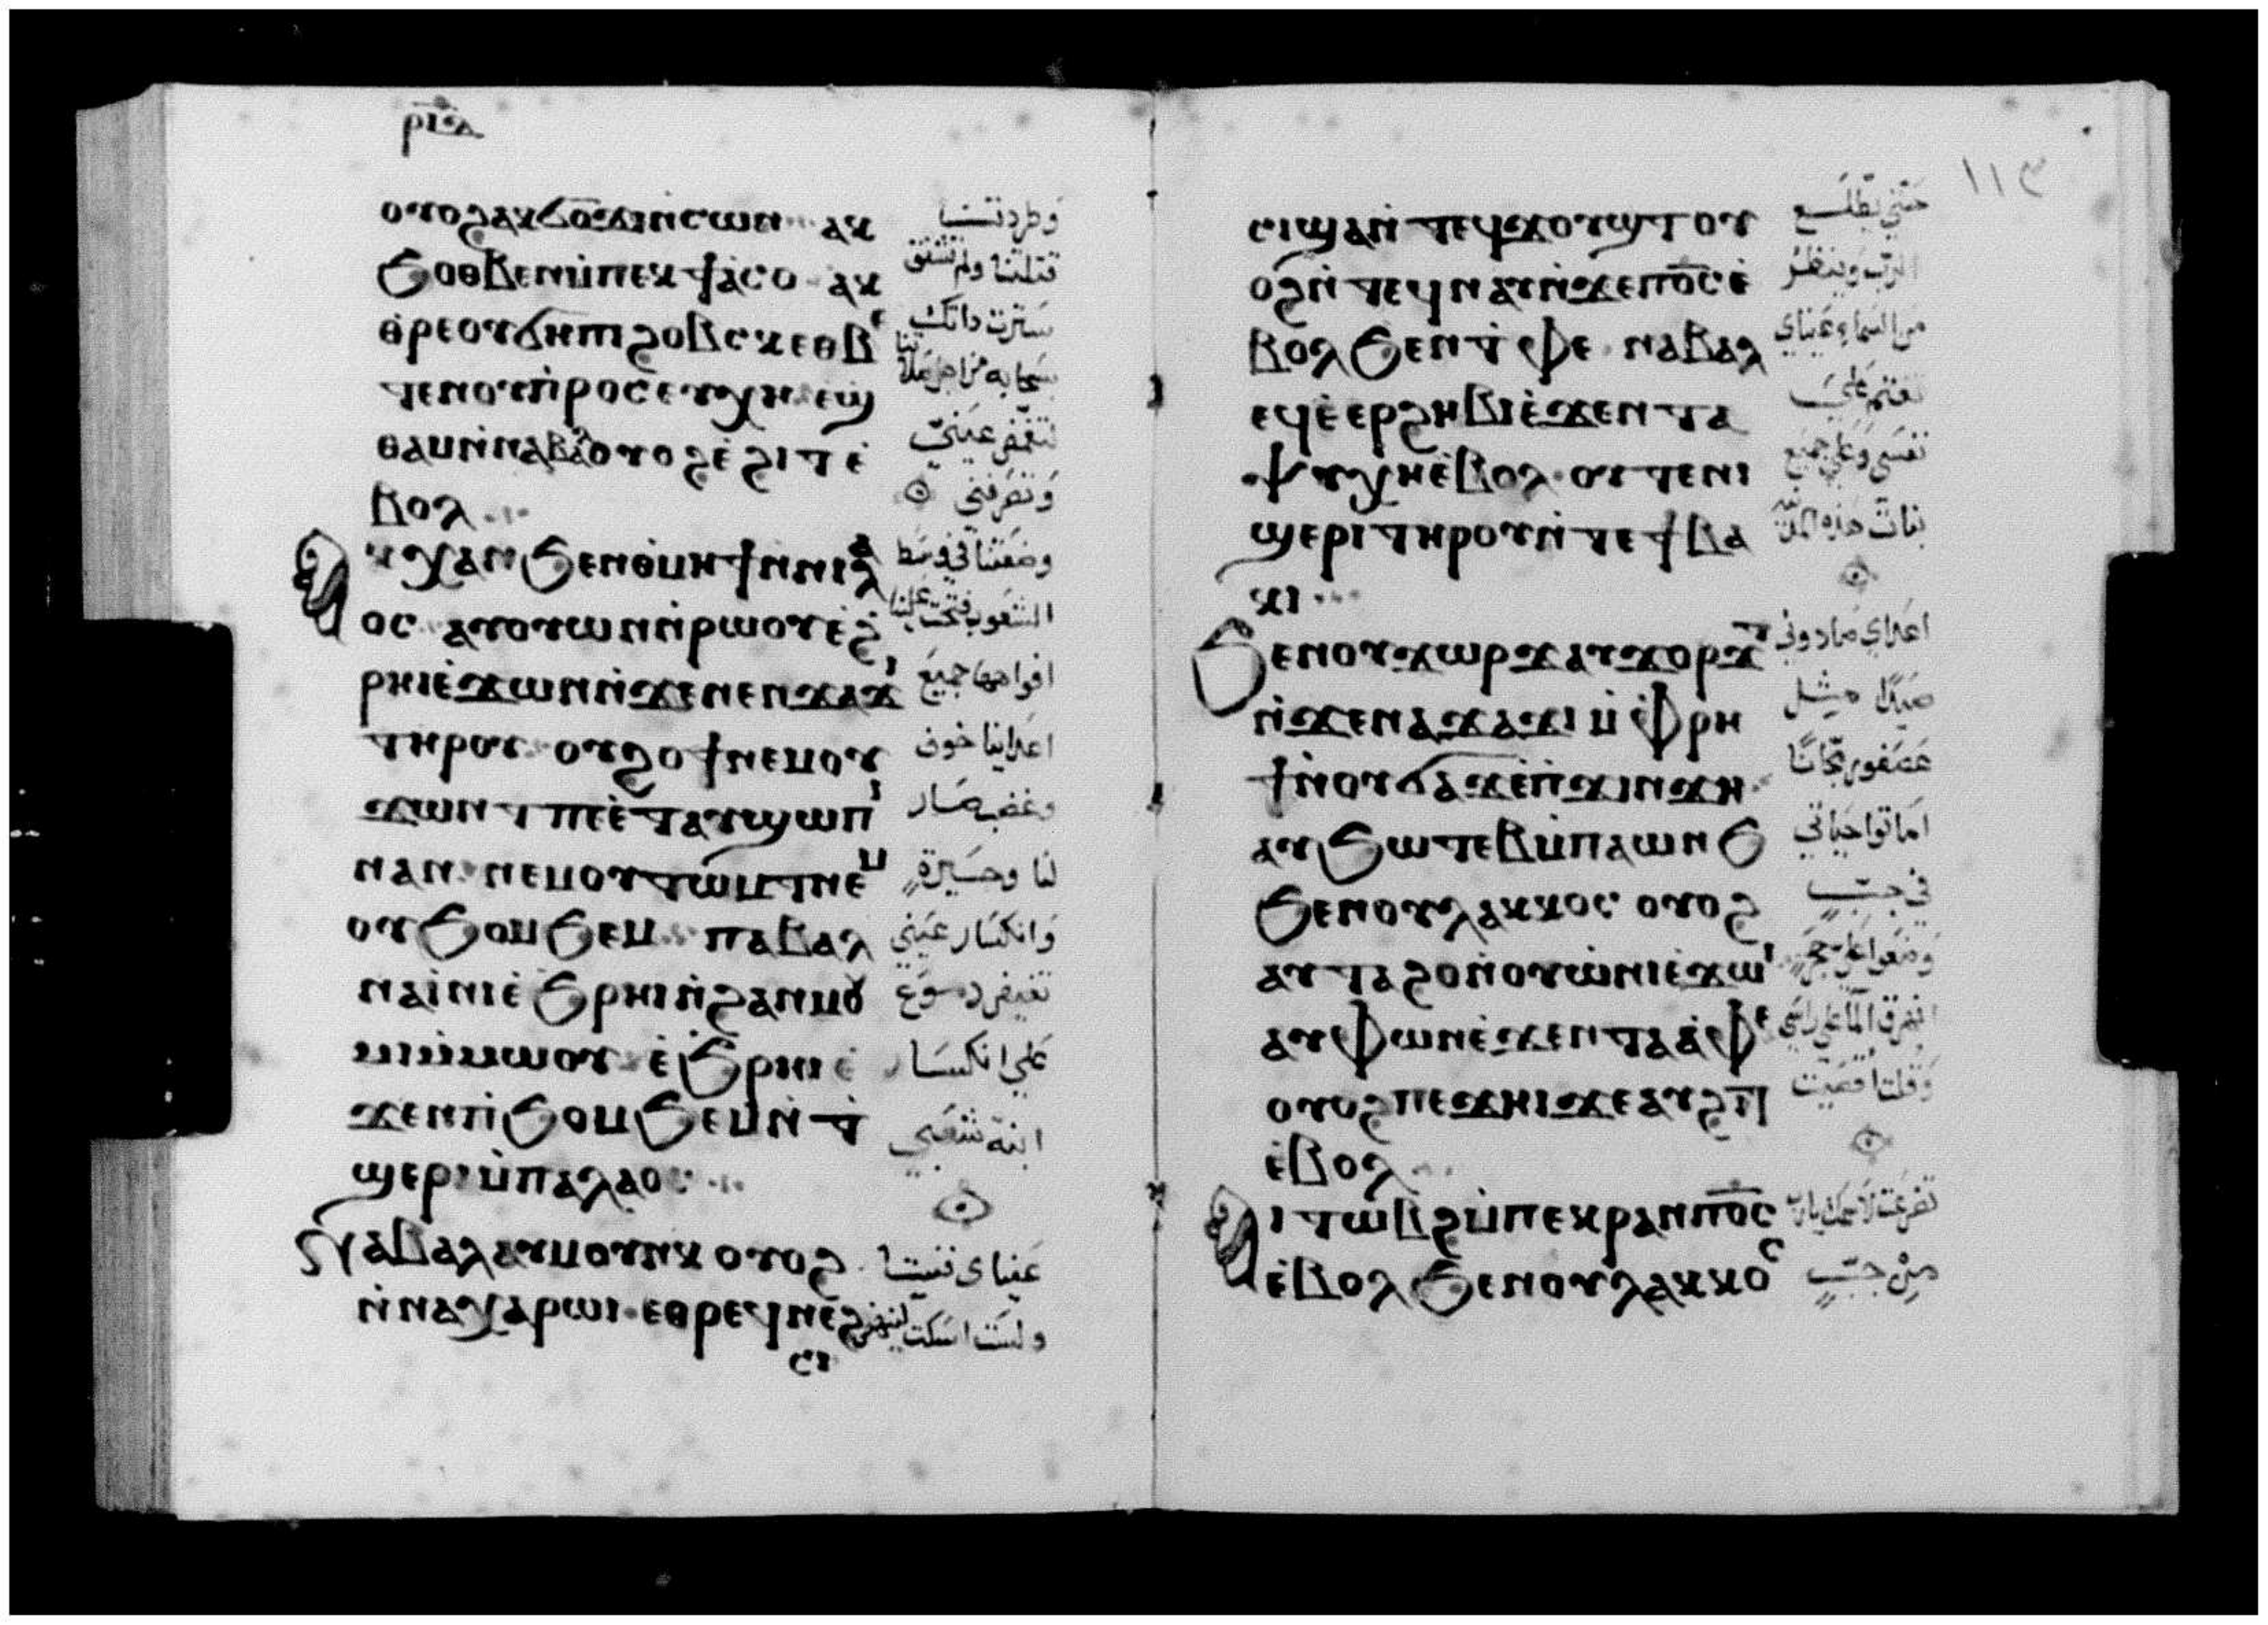 ⲣⲓⲇ
ⲟⲩⲟϩ ⲁⲕϭⲟϫⲓ ⲛ̀ⲥⲱⲛ ⲁⲕ
ϧⲟⲑⲃⲉⲛ ⲙ̀ⲡⲉⲕϯⲁ̀ⲥⲟ ⲁⲕ
ⲑⲣⲉⲟⲩϭⲏⲡⲓ ϩⲟⲃⲥⲕ ⲉⲑⲃⲉ
ⲧⲉⲛⲟⲩⲡ̀ⲣⲟⲥⲉⲩⲭⲏ ⲉϣ
ⲑⲁⲙ ⲛ̀ⲛⲁⲃⲁⲗ ⲟⲩⲟϩ ⲉ̀ϩⲓⲧ ⲉ̀
ⲃⲟⲗ
ⲁⲕⲭⲁⲛ ϧⲉⲛ ⲑ̀ⲙⲏϯ ⲛ̀ⲛⲓⲗⲁ
ⲟⲥ ⲁⲩⲟⲩⲱⲛ ⲛ̀ⲣⲱⲟⲩ ⲉ̀ϩ
ⲣⲏⲓ ⲉ̀ϫⲱⲛ ⲛ̀ϫⲉ ⲛⲉⲛϫⲁϫⲓ
ⲧⲏⲣⲟⲩ ⲟⲩϩⲟϯ ⲛⲉⲙ ⲟⲩ
ϫⲱⲛⲧ ⲡⲉ ⲉ̀ⲧⲁⲩϣⲱⲡⲓ
ⲛⲁⲛ ⲛⲉⲙ ⲟⲩⲧⲱⲙⲧ ⲛⲉⲙ
ⲟⲩϧⲟⲙϧⲉⲙ ⲡⲁⲃⲁⲗ
ⲛⲁⲓ̀ⲛⲓ ⲉ̀ϧⲣⲏⲓ ⲛ̀ϩⲁⲛⲙⲟⲩ
ⲙ̀ⲙⲱⲟⲩ ⲉ̀ϧⲣⲏⲓ ⲉ̀
ϫⲉⲛ ⲡⲓϧⲟⲙϧⲉⲙ ⲛ̀ⲧ
ϣⲉⲣⲓ ⲙ̀ⲡⲁⲗⲁⲟⲥ
ⲛⲁⲃⲁⲗ ⲁⲩⲙⲟⲩⲛⲕ ⲟⲩⲟϩ
ⲛ̀ⲛⲁⲭⲁⲣⲱⲓ ⲉⲑⲣⲉϥⲛⲉϩ
ⲥⲓ
وطردتنا
قتلتنا ولم تشفق
سترت ذاتك
بسحابه من اجل صلاتنا
لتغمض عيني
وتفرقني
وضعتنا في وسط
الشعوب فتحت علينا
افواهها جميع
اعدائنا خوف
وغضب صار
لنا وحسيرة
وانكسار عيني
تفيض دموع
علي انكسار
ابنة شعبي
عيناي فنيتا
ولست اسكت
١١٣
ⲥⲓ ϣⲁⲛⲧⲉϥϫⲟⲩϣⲧ ⲟⲩ
ⲟϩ ⲛ̀ⲧⲉϥⲛⲁⲩ ⲛ̀ϫⲉ ⲡⲟ̅ⲥ̅ ⲉ̀
ⲃⲟⲗ ϧⲉⲛ ⲧ̀ⲫⲉ ⲛⲁⲃⲁⲗ
ⲉϥⲉ̀ⲉⲣϩⲏⲃⲓ ⲉ̀ϫⲉⲛ ⲧⲁ
ⲯⲩⲭⲏ ⲉ̀ⲃⲟⲗ ⲟⲩⲧⲉ ⲛⲓ
ϣⲉⲣⲓ ⲧⲏⲣⲟⲩ ⲛ̀ⲧⲉ ϯⲃⲁ
ⲕⲓ
ϧⲉⲛ ⲟⲩϫⲱⲣϫ ⲁⲩϫⲟⲣϫⲧ
ⲛ̀ϫⲉ ⲛⲁϫⲁϫⲓ ⲙ̀ⲫⲣⲏ
ϯ ⲛ̀ⲟⲩϭⲁϫ ⲉ̀ⲡϫⲓⲛϫⲏ
ⲁⲩϧⲱⲧⲉⲃ ⲙ̀ⲡⲁⲱⲛϧ
ϧⲉⲛ ⲟⲩⲗⲁⲕⲕⲟⲥ ⲟⲩⲟϩ
ⲁⲩⲧⲁϩⲟ ⲛ̀ⲟⲩⲱ̀ⲛⲓ ⲉ̀ϫⲱⲓ
ⲁⲩⲫⲱⲛ ⲉ̀ϫⲉⲛ ⲧⲁⲁ̀ⲫⲉ
ⲟⲩⲟϩ ⲡⲉϫⲏⲓ ϫⲉ ⲁⲩϩⲓⲧ
ⲉ̀ⲃⲟⲗ
ⲁⲓⲧⲱⲃϩ ⲙ̀ⲡⲉⲕⲣⲁⲛ ⲡⲟ̅ⲥ̅
ⲉ̀ⲃⲟⲗ ϧⲉⲛ ⲟⲩⲗⲁⲕⲕⲟⲥ
حتي يطلع
الرب وينظر
من السما وعيناي
تغتم علي
نفسي وعلي جميع
بنات هذه المدينه
اعداي صادوني
صيدًا مثل
عصفور مجانًا
اماتوا حياتي
في جب
وضعوا علي حجر
انهرق الما علي راسي
وقلت اقصيت
تضرعت لاسمك يارب
من جب